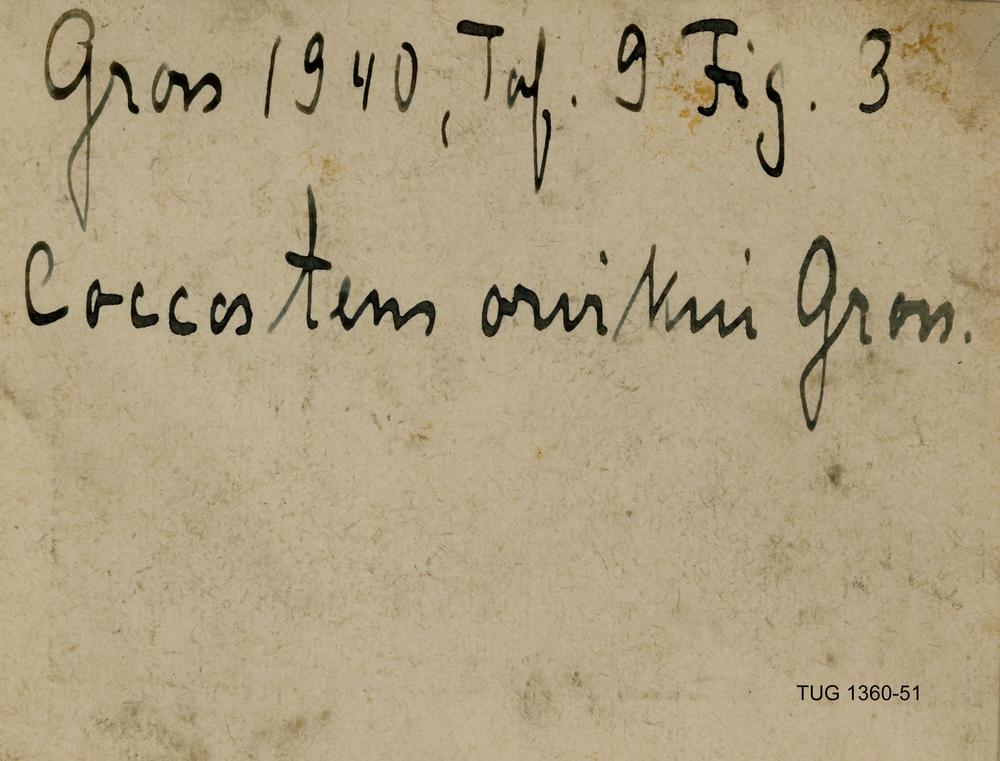 Gross 1940, Taf. 9 Fig. 3
Coccosteus orvikui Gross.
TUG 1360-51